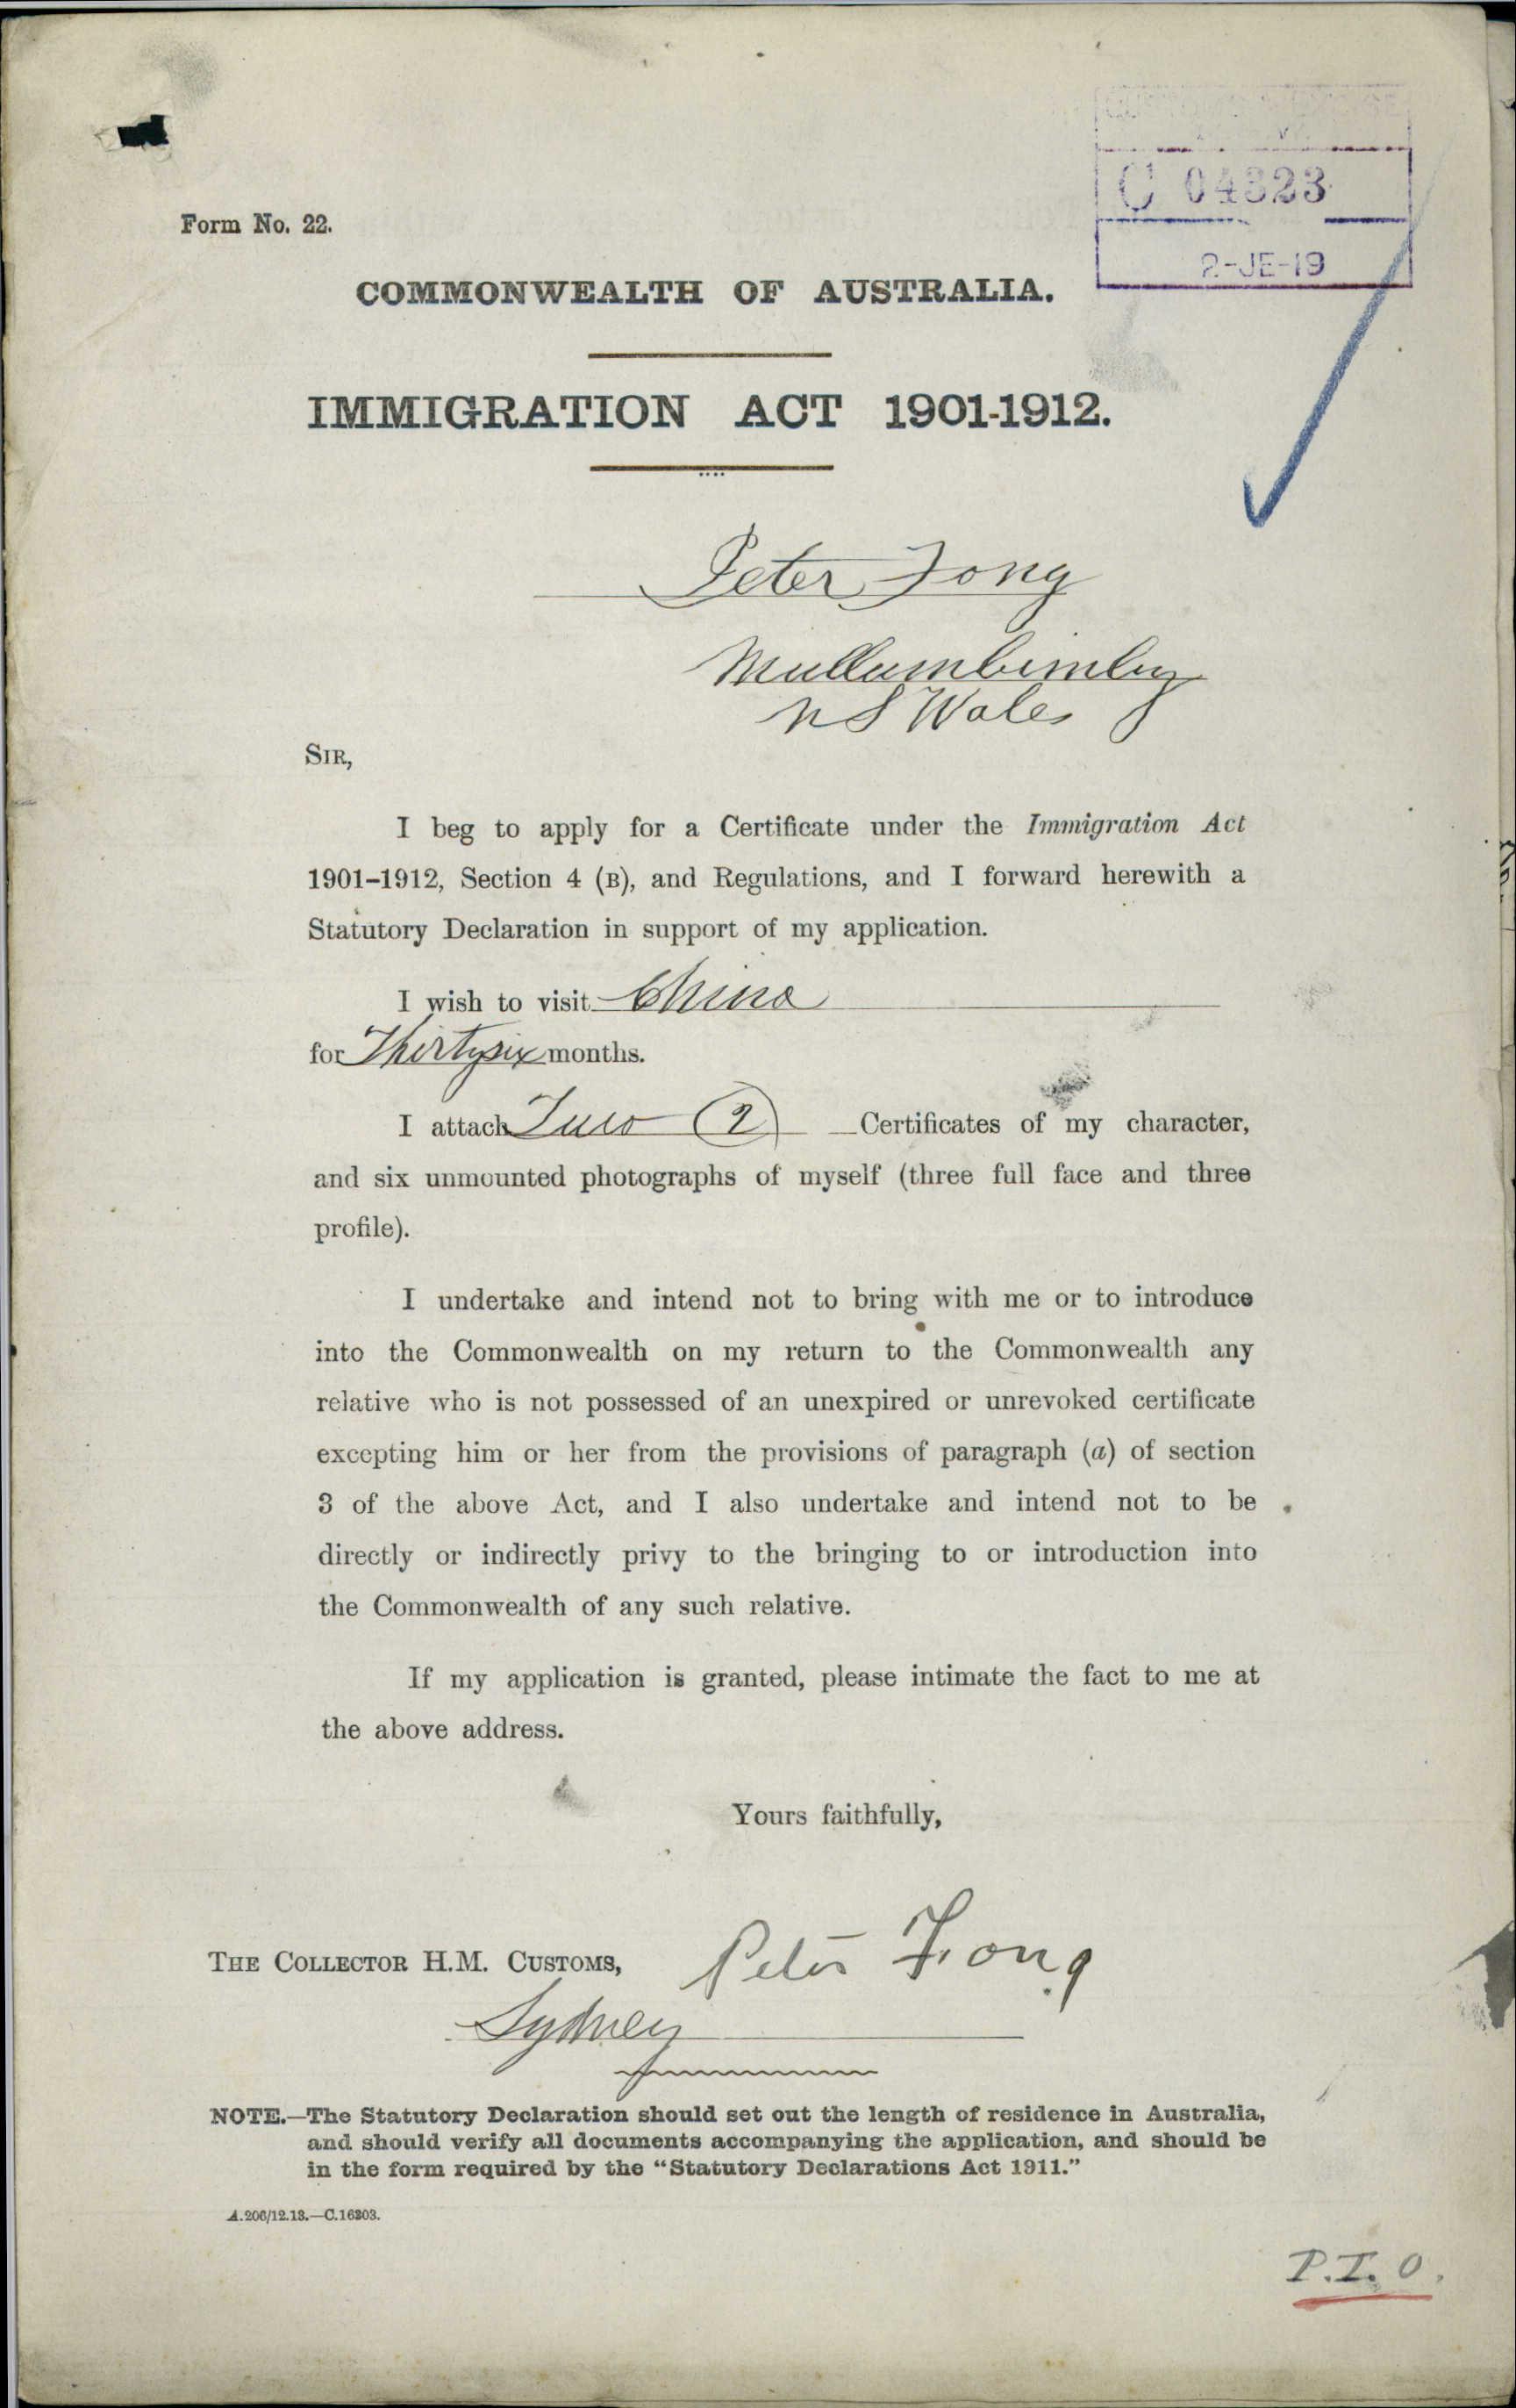 C 04323
2-JE-19
Form No. 22.
COMMONWEALTH OF AUSTRALIA.
IMMIGRATION ACT 1901-1912.
Peter Fong
Mullumbimby
N S Wales
SIR,
I beg to apply for a Certificate under the Immigration Act
1901–1912, Section 4 (B), and Regulations, and I forward herewith a
Statutory Declaration in support of my application.
I wish to visit China
for Thirtysix months.
I attach Two (2) Certificates of my character,
and six unmounted photographs of myself (three full face and three
profile).
I undertake and intend not to bring with me or to introduce
into the Commonwealth on my return to the Commonwealth any
relative who is not possessed of an unexpired or unrevoked certificate
excepting him or her from the provisions of paragraph (a) of section
3 of the above Act, and I also undertake and intend not to be
directly or indirectly privy to the bringing to or introduction into
the Commonwealth of any such relative.
If my application is granted, please intimate the fact to me at
the above address.
Yours faithfully,
THE COLLECTOR H.M. CUSTOMS, Peter Fong
Sydney
NOTE.—The Statutory Declaration should set out the length of residence in Australia,
and should verify all documents accompanying the application, and should be
in the form required by the “Statutory Declarations Act 1911.”
A.206/12.13.—C.16303.
P.T.O.